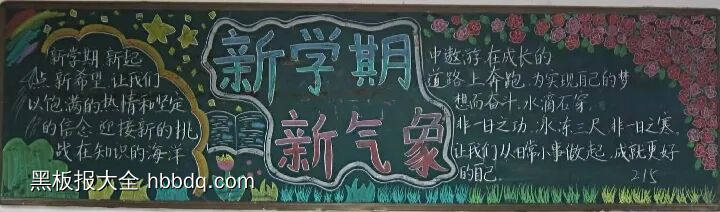 新学期 新起
点 新希望 让我们
以饱满的热情和坚定
的信念 迎接新的挑
战 在知识的海洋
新学期
新气象
中遨游 在成长的
道路上奔跑 为实现自己的梦
想而奋斗 水滴石穿
非一日之功 冰冻三尺 非一日之寒
让我们从日常小事做起 成就更好
的自己
215
黑板报大全 hbbdq.com